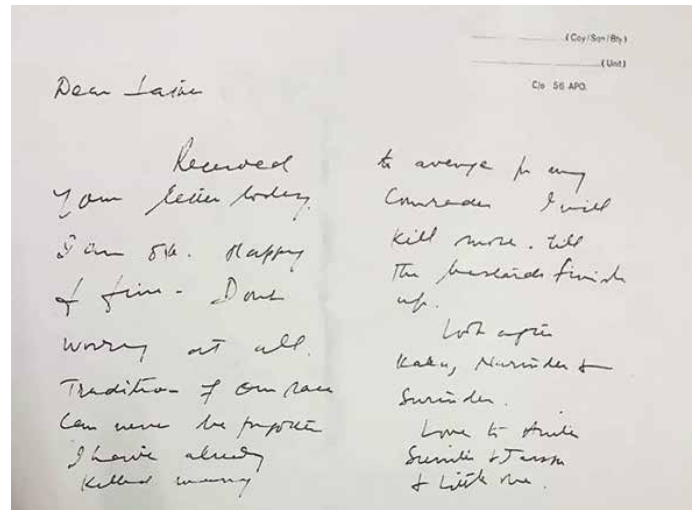 (Coy/Sqn/Bty)
(Unit)
C/o 56 APO.
Dear
Received
Your letter today.
I am OK. Happy
& fine - Dont
worry at all.
Tradition of our race
Can never be forgotten
I have already
Killed many
to avenge for my
Comrades I will
Kill more. till
The bastards finish
up.
Look after
Kaku, Narinder &
Surinder.
Love to
&
& little one.